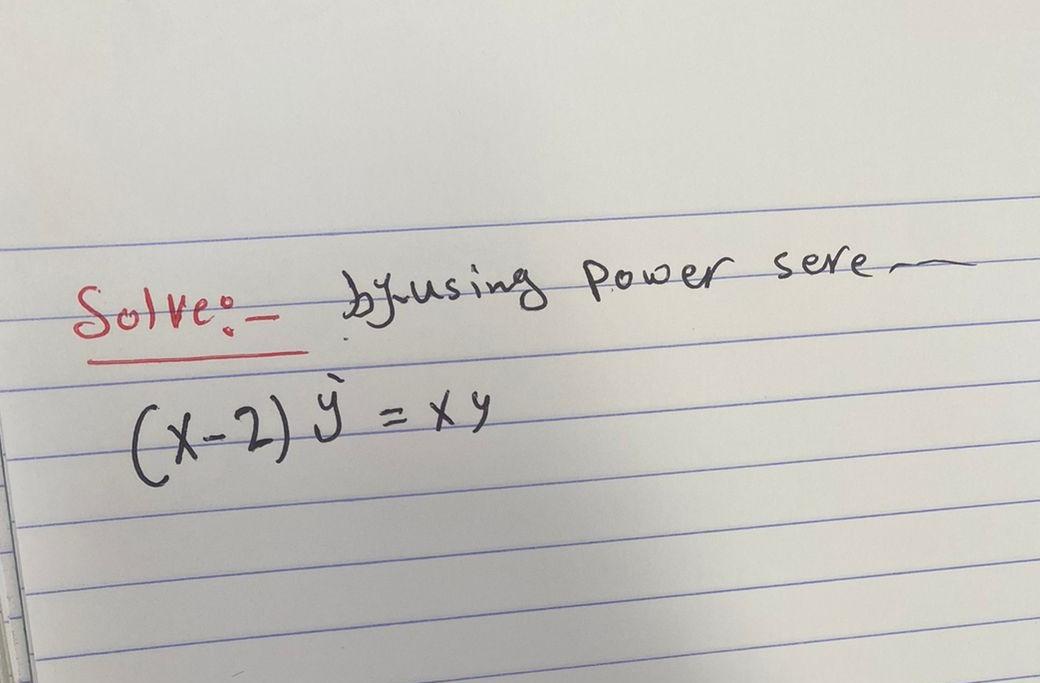 Solve:- by using power sere
(x-2) y` = xy